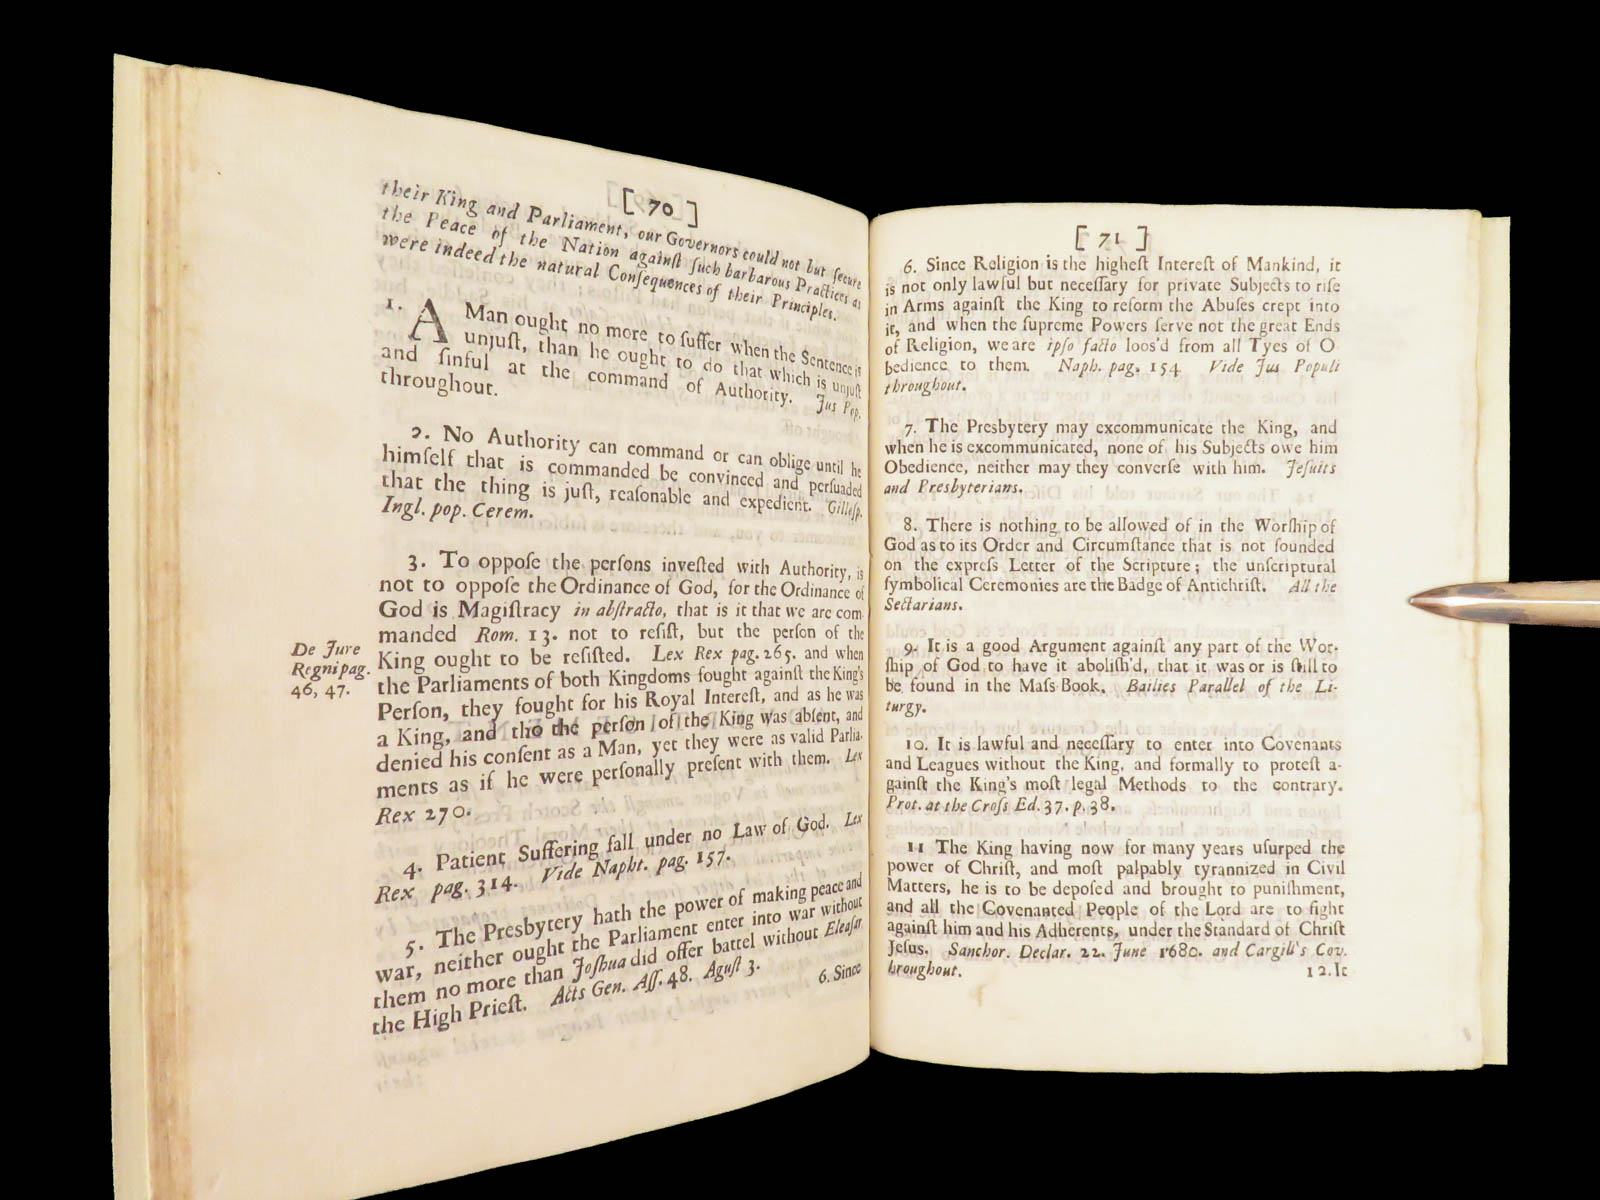 [ 70 ]
their King and Parliament, our Governors could not but ſecure
the Peace of the Nation againſt ſuch barbarous Practices as
were indeed the natural Conſequences of their Principles.
1. A Man ought no more to ſuffer when the Sentence is
unjuſt, than he ought to do that which is unjuſt
and ſinful at the command of Authority. Jus Pop.
throughout.
2. No Authority can command or can oblige until he
himſelf that is commanded be convinced and perſuaded
that the thing is juſt, reaſonable and expedient. Gilleſp.
Ingl. pop. Cerem.
3. To oppoſe the perſons inveſted with Authority, is
not to oppoſe the Ordinance of God, for the Ordinance of
God is Magiſtracy in abſtracto, that is it that we are com-
manded Rom. 13. not to reſiſt, but the perſon of the
De Jure
Regni pag.
46, 47.
King ought to be reſiſted. Lex Rex pag. 265. and when
the Parliaments of both Kingdoms fought againſt the King's
Perſon, they fought for his Royal Intereſt, and as he was
a King, and tho the perſon of the King was abſent, and
denied his conſent as a Man, yet they were as valid Parlia-
ments as if he were perſonally preſent with them. Lex
Rex 270.
4. Patient Suffering fall under no Law of God. Lex
Rex pag. 314. Vide Napht. pag. 157.
5. The Presbytery hath the power of making peace and
war, neither ought the Parliament enter into war without
them no more than Joſhua did offer battel without Eleaſar
the High Prieſt. Acts Gen. Aſſ. 48. Aguſt 3.
6. Since
[ 71 ]
6. Since Religion is the higheſt Intereſt of Mankind, it
is not only lawful but neceſſary for private Subjects to riſe
in Arms againſt the King to reform the Abuſes crept into
it, and when the ſupreme Powers ſerve not the great Ends
of Religion, we are ipſo facto loos'd from all Tyes of O
bedience to them. Naph. pag. 154 Vide Jus Populi
throughout.
7. The Presbytery may excommunicate the King, and
when he is excommunicated, none of his Subjects owe him
Obedience, neither may they converſe with him. Jeſuits
and Presbyterians.
8. There is nothing to be allowed of in the Worſhip of
God as to its Order and Circumſtance that is not founded
on the expreſs Letter of the Scripture; the unſcriptural
ſymbolical Ceremonies are the Badge of Antichriſt. All the
Sectarians.
9. It is a good Argument againſt any part of the Wor-
ſhip of God to have it aboliſh'd, that it was or is ſtill to
be found in the Maſs-Book. Bailies Parallel of the Li-
turgy.
10. It is lawful and neceſſary to enter into Covenants
and Leagues without the King, and formally to proteſt a-
gainſt the King's moſt legal Methods to the contrary.
Prot. at the Croſs Ed. 37. p. 38.
11 The King having now for many years uſurped the
power of Chriſt, and moſt palpably tyrannized in Civil
Matters, he is to be depoſed and brought to puniſhment,
and all the Covenanted People of the Lord are to fight
againſt him and his Adherents, under the Standard of Chriſt
Jeſus. Sanchor. Declar. 22. June 1680. and Cargill's Cov.
hroughout.
12. It